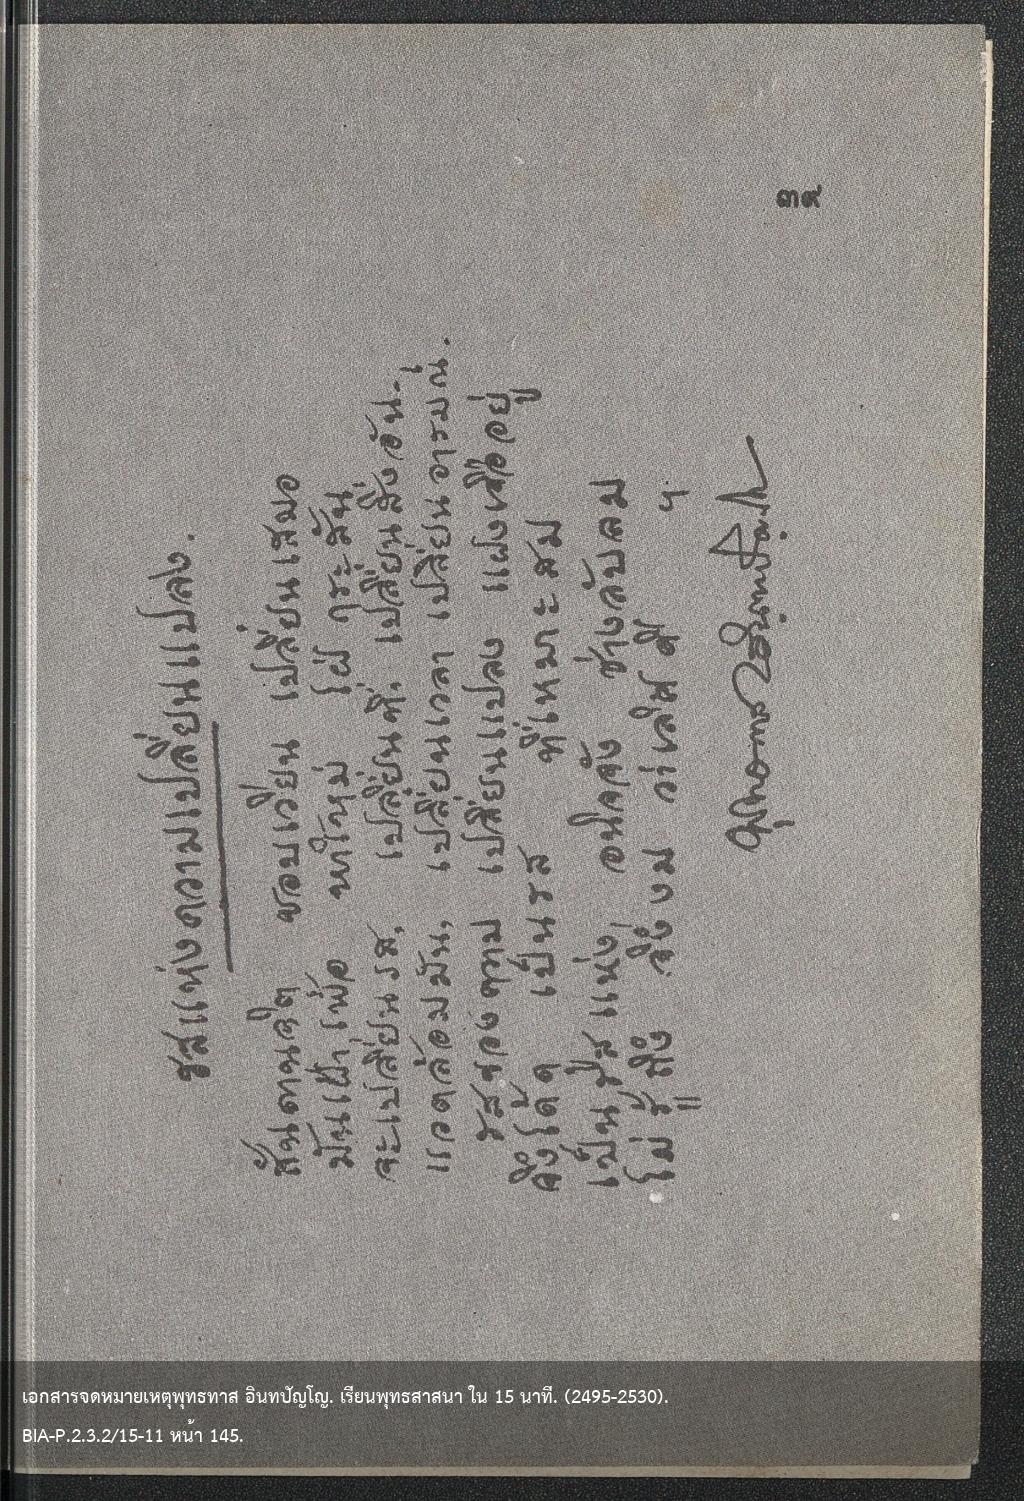 รสแห่งความเปลี่ยนแปลง.
สันดานจิต ชอบเวียน เปลี่ยนเสมอ
มันเฝ้าเพ้อ หาใหม่ ใฝ่กระสัน
จะเปลี่ยนรส, เปลี่ยนที่, เปลี่ยนสิ่งอัน-
แวดล้อมมัน, เปลี่ยนเวลา เปลี่ยนอารมณ์.
รสของความ เปลี่ยนแปลง แฝงเจืออยู่
จึงได้ดู เป็นรส ที่เหมาะสม
เป็นรสแห่ง อนิจจัง ช่างลับลม
ไม่รู้ถึง จึ่งงม ว่าเลิศดี ฯ
พุทธทาส อินฺทปญฺโญ
๓๙
เอกสารจดหมายเหตุพุทธทาส อินทปัญโญ. เรียนพุทธสาสนา ใน 15 นาที. (2495-2530).
BIA-P.2.3.2/15-11 หน้า 145.